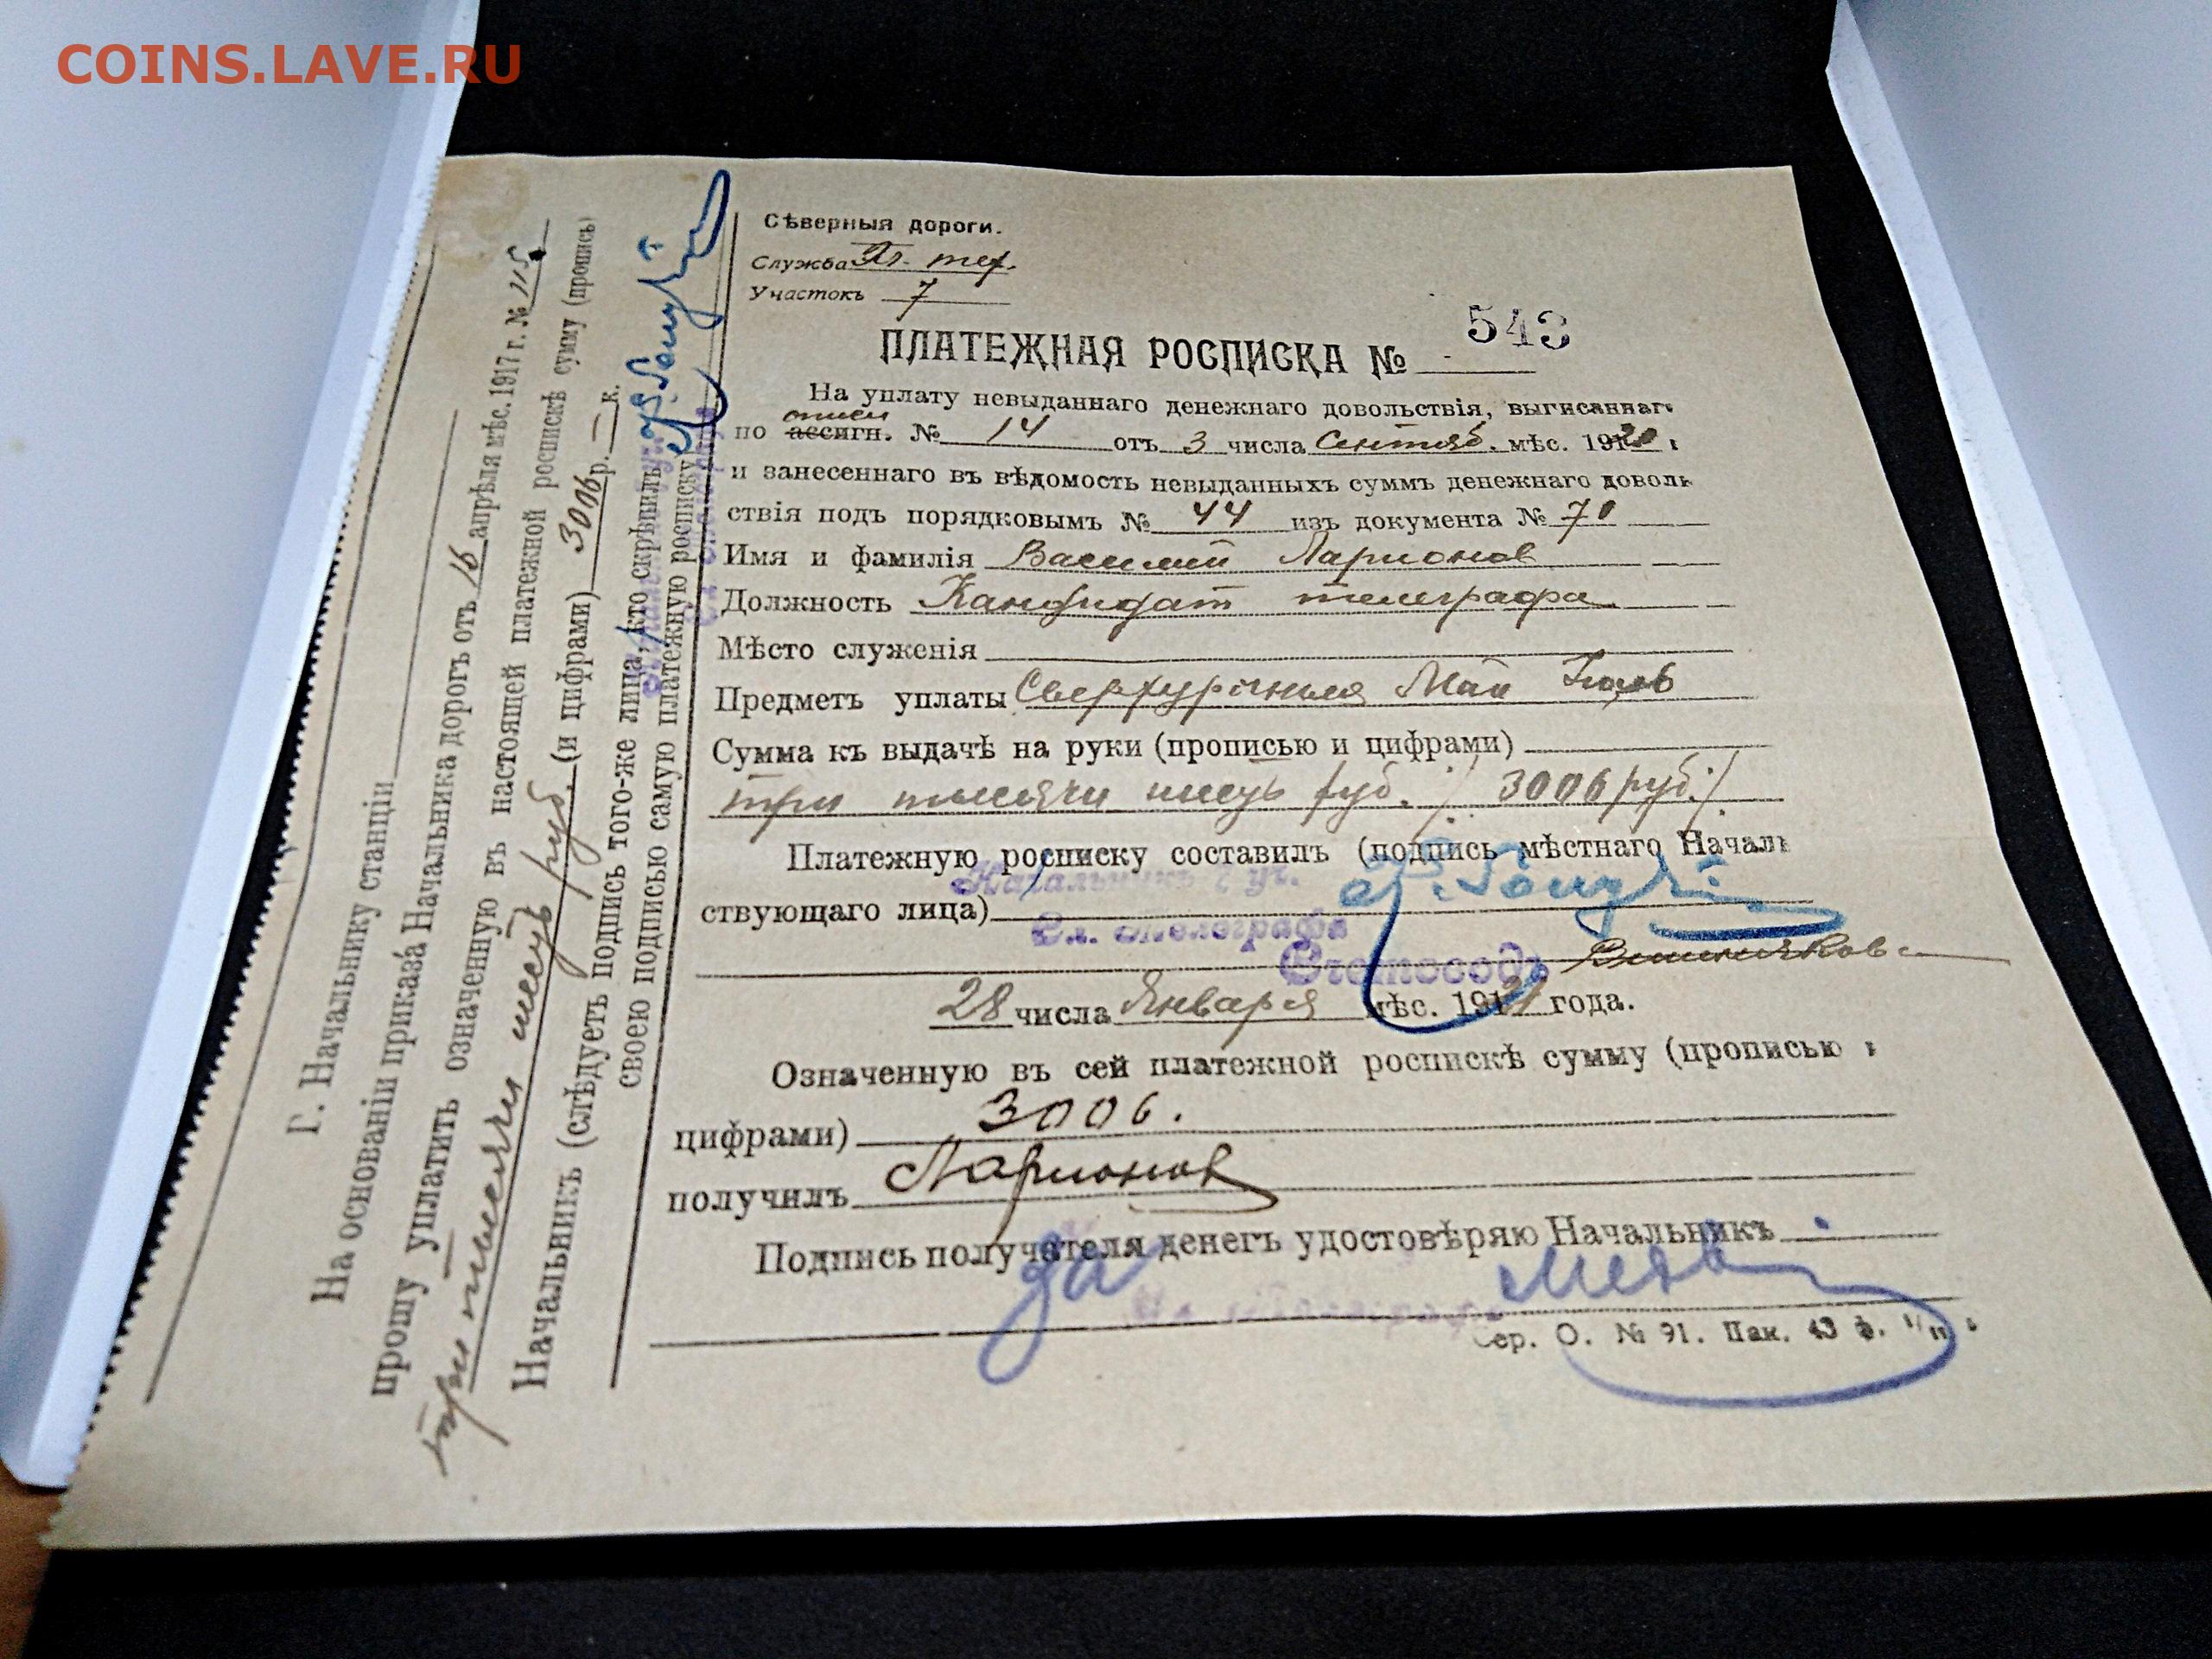 COINS.LAVE.RU
Г. Начальнику станціи
На основаніи приказа Начальника дорогъ отъ 16 апрѣля мѣс. 1917 г. № 115
прошу уплатить означенную въ настоящей платежной роспискѣ сумму (прописью
три тысячи шесть руб. (и цифрами) 3006 р. — к.
Начальникъ (слѣдуетъ подпись того-же лица, кто скрѣпилъ
своею подписью самую платежную росписку)
Сѣверныя дороги.
Служба тел.
Участокъ 7
ПЛАТЕЖНАЯ РОСПИСКА № 543
На уплату невыданнаго денежнаго довольствія, выписаннаг
по ассигн. № 14 отъ 3 числа Сентяб. мѣс. 1920
и занесеннаго въ вѣдомость невыданныхъ суммъ денежнаго доволь
ствія подъ порядковымъ № 44 изъ документа № 70
Имя и фамилія Василий Ларионов
Должность Кандидат телеграфа
Мѣсто служенія
Предметъ уплаты Сверхурочныя Май
Сумма къ выдачѣ на руки (прописью и цифрами)
три тысячи шесть руб. /. 3006 руб. /
Платежную росписку составилъ (подпись мѣстнаго Началь
Начальникъ 7 уч.
ствующаго лица)
Сл. Телеграфа
Счетовод
28 числа Января мѣс. 1921 года.
Означенную въ сей платежной роспискѣ сумму (прописью и
цифрами) 3006.
получилъ Ларионов
Подпись получателя денегъ удостовѣряю Начальникъ
Сер. О. № 91. Пак. 43 ф.